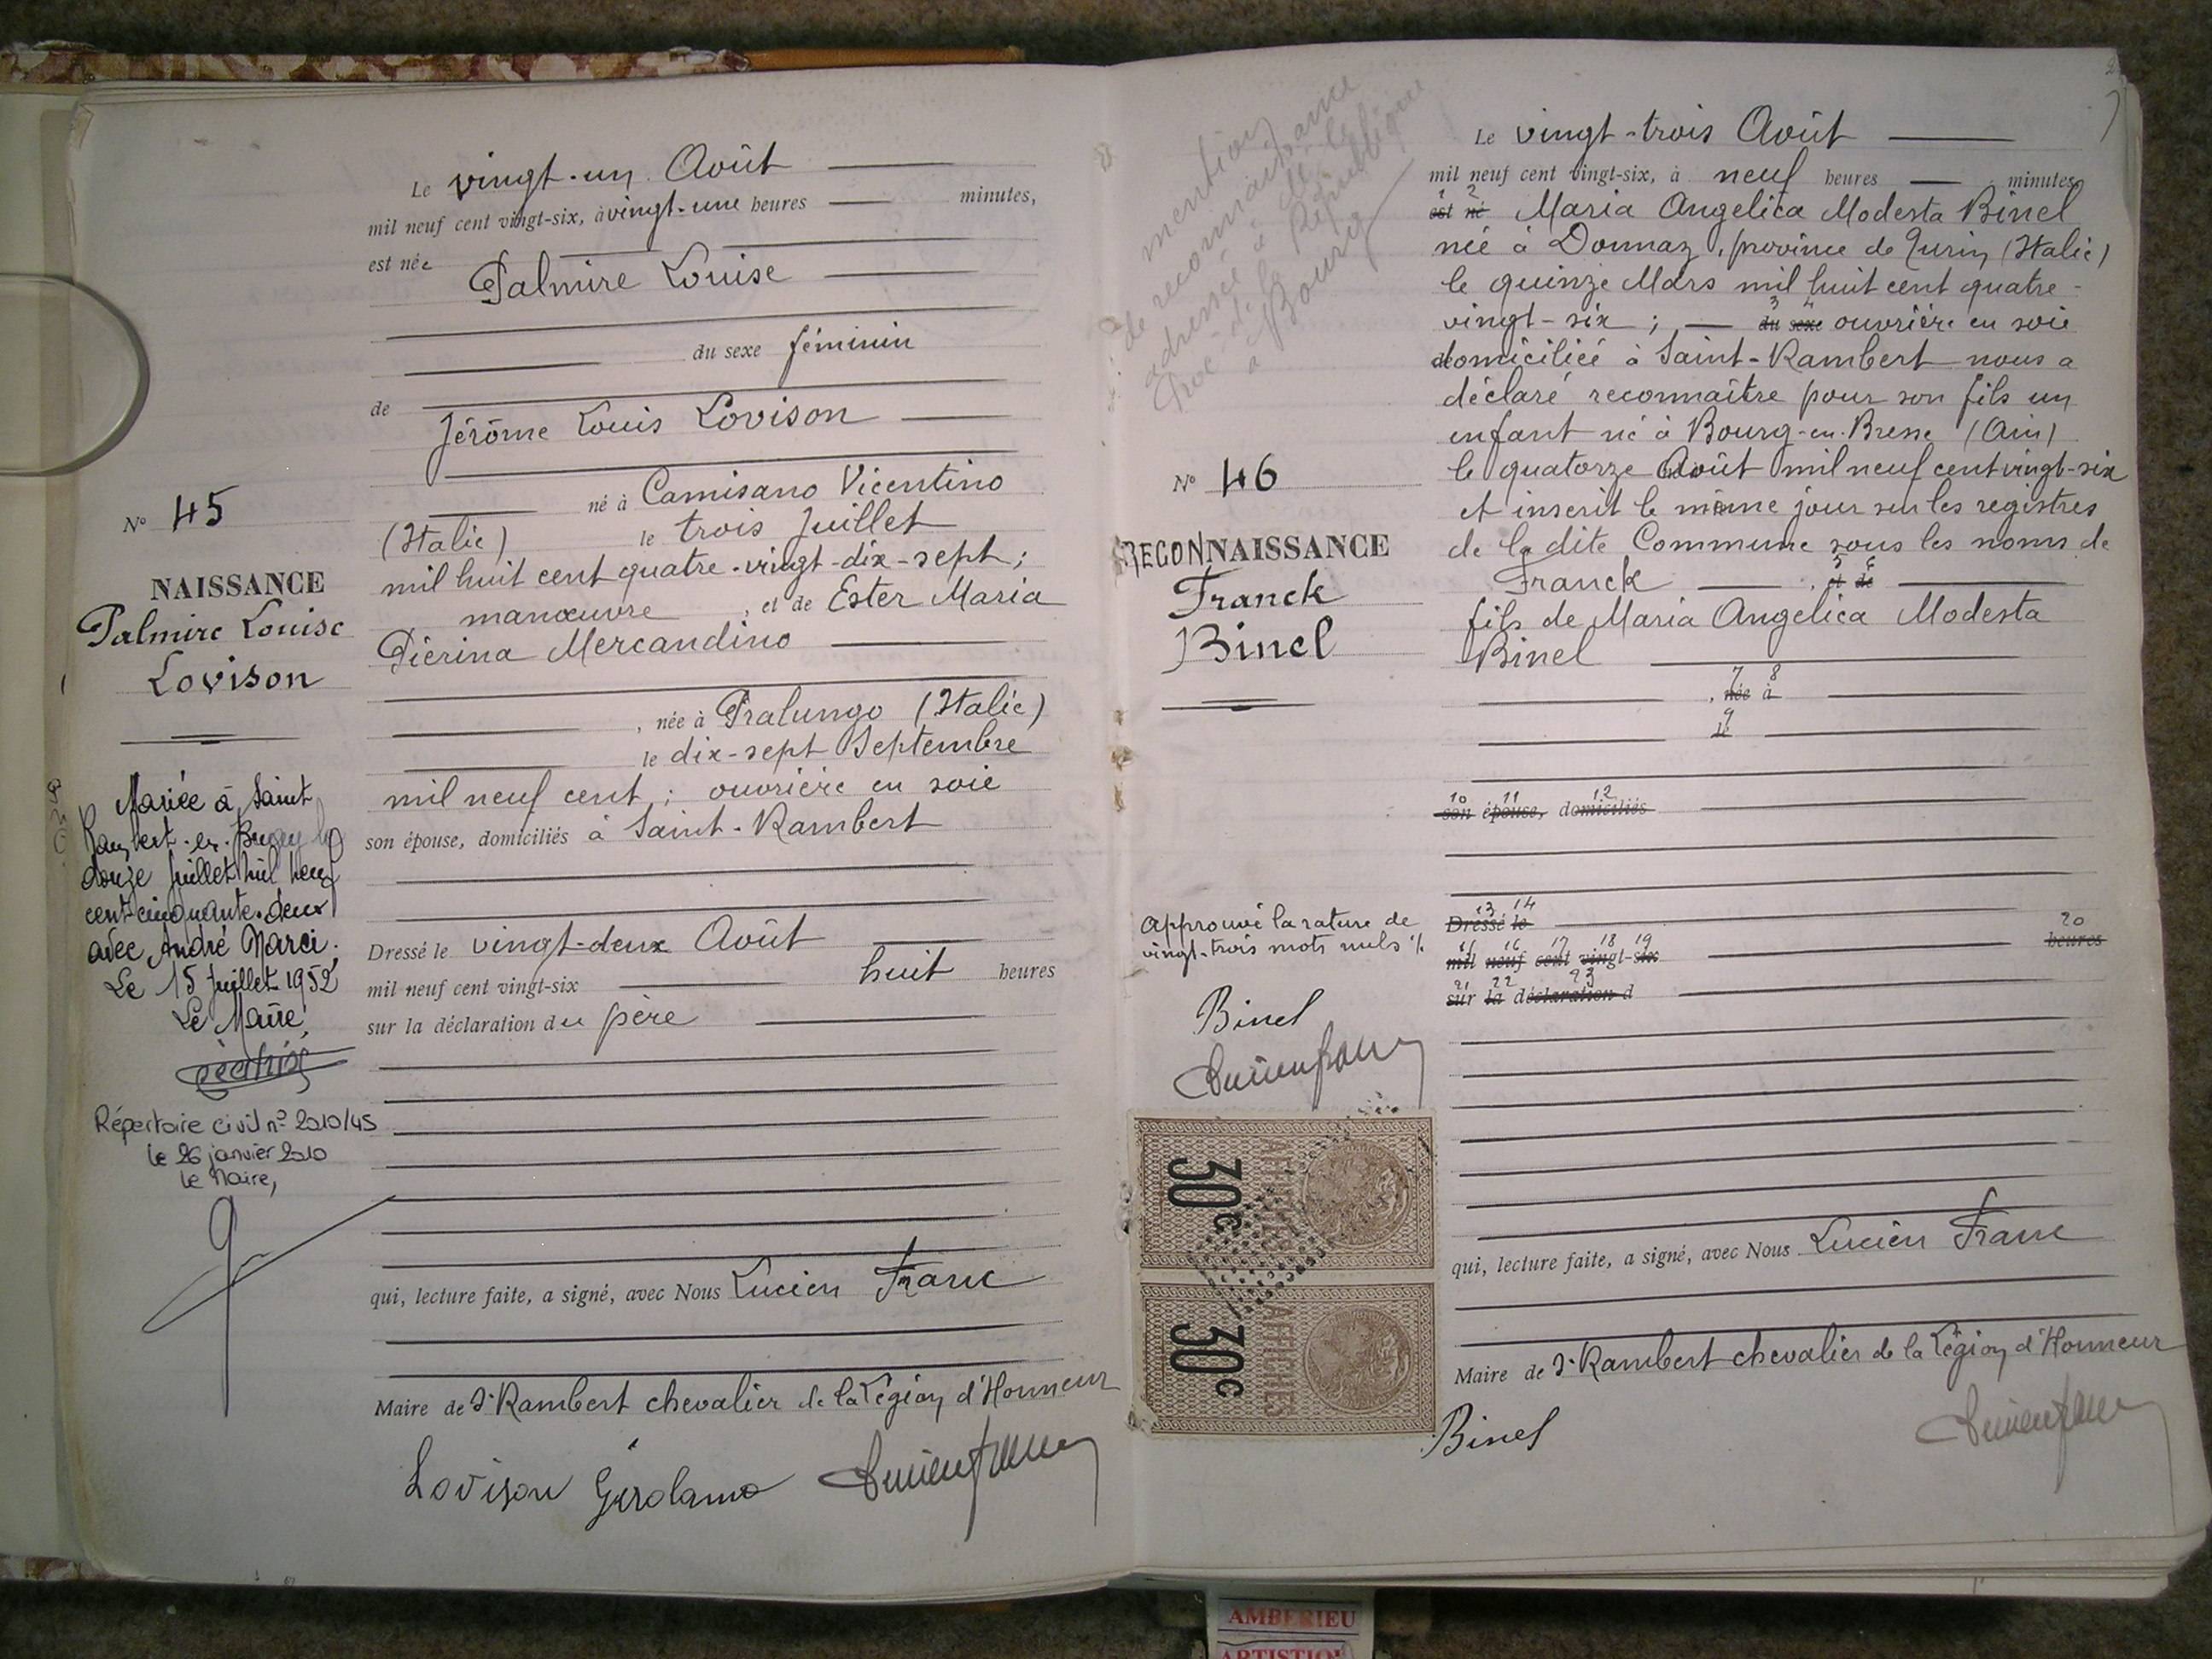 Le vingt-un Août
mil neuf cent vingt-six, à vingt-une heures minutes,
est née
Palmire Louise
du sexe féminin
de
Jérôme Louis Lovison
né à Camisano Vicentino
(Italie) le trois Juillet
mil huit cent quatre-vingt-dix-sept;
manœuvre, et de Ester Maria
Piérina Mercandino
, née à Pralungo (Italie)
le dix-sept Septembre
mil neuf cent; ouvrière en soie
son épouse, domiciliés à Saint-Rambert
Dressé le vingt-deux Août
mil neuf cent vingt-six huit heures
sur la déclaration du père
qui, lecture faite, a signé, avec Nous Lucien Franc
Maire de St Rambert chevalier de la Légion d'Honneur
Lovison Girolamo
N° 45
NAISSANCE
Palmire Louise
Lovison
Mariée à Saint
Rambert-en-Bugey le
douze Juillet mil neuf
cent cinquante-deux
avec André Narci.
Le 15 Juillet 1952
Le Maire,
Répertoire civil n° 2010/45
le 26 janvier 2010
Le Maire,
mention
de reconnaissance
adressée à M. le
Proc. de la République
à Bourg
N° 46
RECONNAISSANCE
Franck
Binel
Approuvé la rature de
vingt-trois mots nuls
Binel
AFFICHES
30c
AFFICHES
30c
Le vingt-trois Août
mil neuf cent vingt-six, à neuf heures minutes
1 2
est né Maria Angelica Modesta Binel
née à Donnaz, province de Turin (Italie)
le quinze Mars mil huit cent quatre-
3 4
vingt-six; du sexe ouvrière en soie
domiciliée à Saint-Rambert nous a
déclaré reconnaître pour son fils un
enfant né à Bourg-en-Bresse (Ain)
le quatorze Août mil neuf cent vingt-six
et inscrit le même jour sur les registres
de la dite Commune sous les noms de
5 6
Franck, et de
fils de Maria Angelica Modesta
Binel
7 8
, née à
9
le
10 11 12
son épouse, domiciliés
13 14
Dressé le
15 16 17 18 19 20
mil neuf cent vingt-six heures
21 22 23
sur la déclaration d
qui, lecture faite, a signé, avec Nous Lucien Franc
Maire de St Rambert chevalier de la Légion d'Honneur
Binel
AMBERIEU